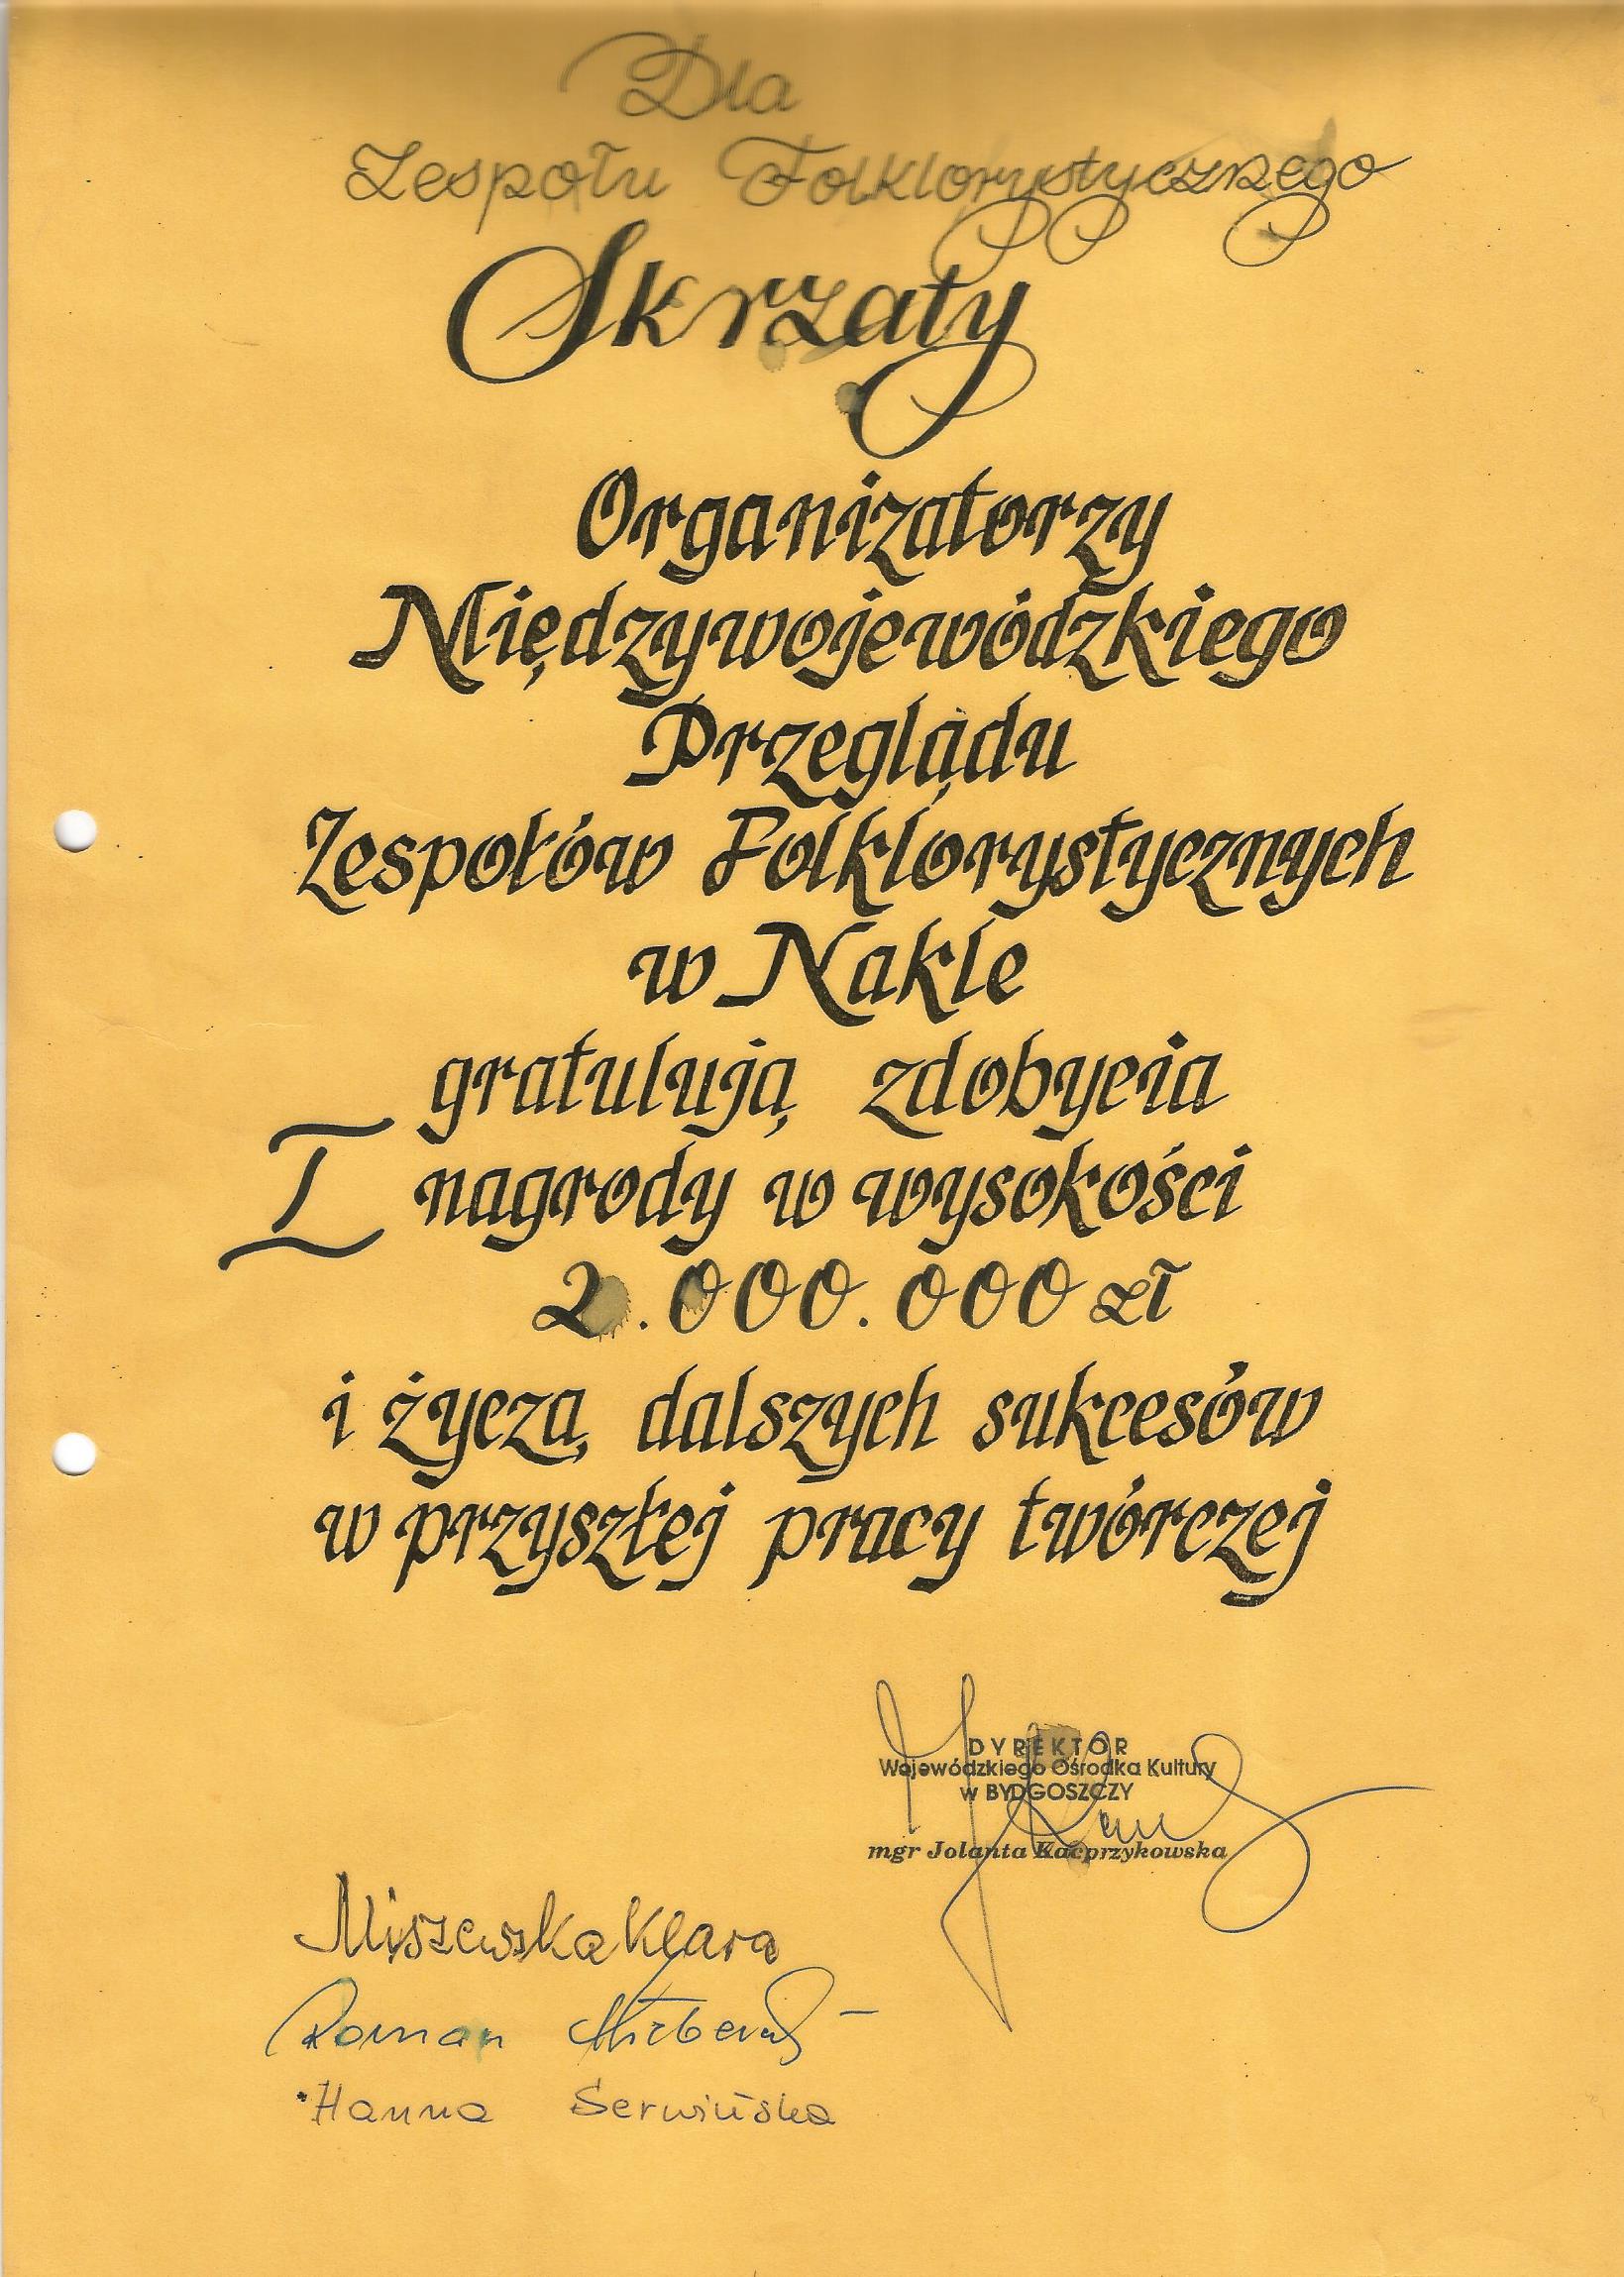 Dla
Zespołu Folklorystycznego
Skrzaty
Organizatorzy
Międzywojewódzkiego
Przeglądu
Zespołów Folklorystycznych
w Nakle
gratulują zdobycia
I nagrody w wysokości
2.000.000 zł
i życzą dalszych sukcesów
w przyszłej pracy twórczej
DYREKTOR
Wojewódzkiego Ośrodka Kultury
w BYDGOSZCZY
mgr Jolanta Kacprzykowska
Miszewska Klara
Roman
Hanna Serwińska